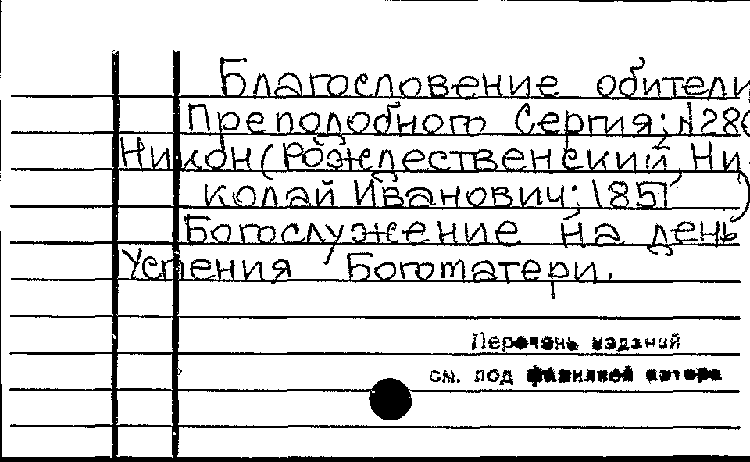 Благословение обители
Преподобного Сергия; №280
Никон (Рождественский, Ни-
колай Иванович; 1851)
Богослужение на день
Успения Богоматери.
Перечень изданий
см. под фамилией автора